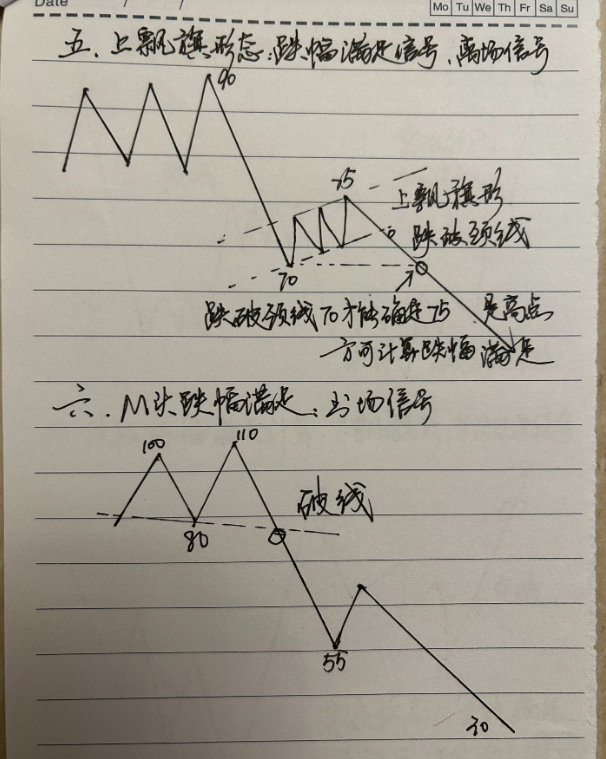 Date / /
Mo Tu We Th Fr Sa Su
五、上飘旗形态:跌幅满足信号、离场信号
90
75
上飘旗形
跌破颈线
70
跌破颈线70才能确定75 是高点
方可计算跌幅满足
六、M头跌幅满足:出场信号
100
110
破线
80
55
30